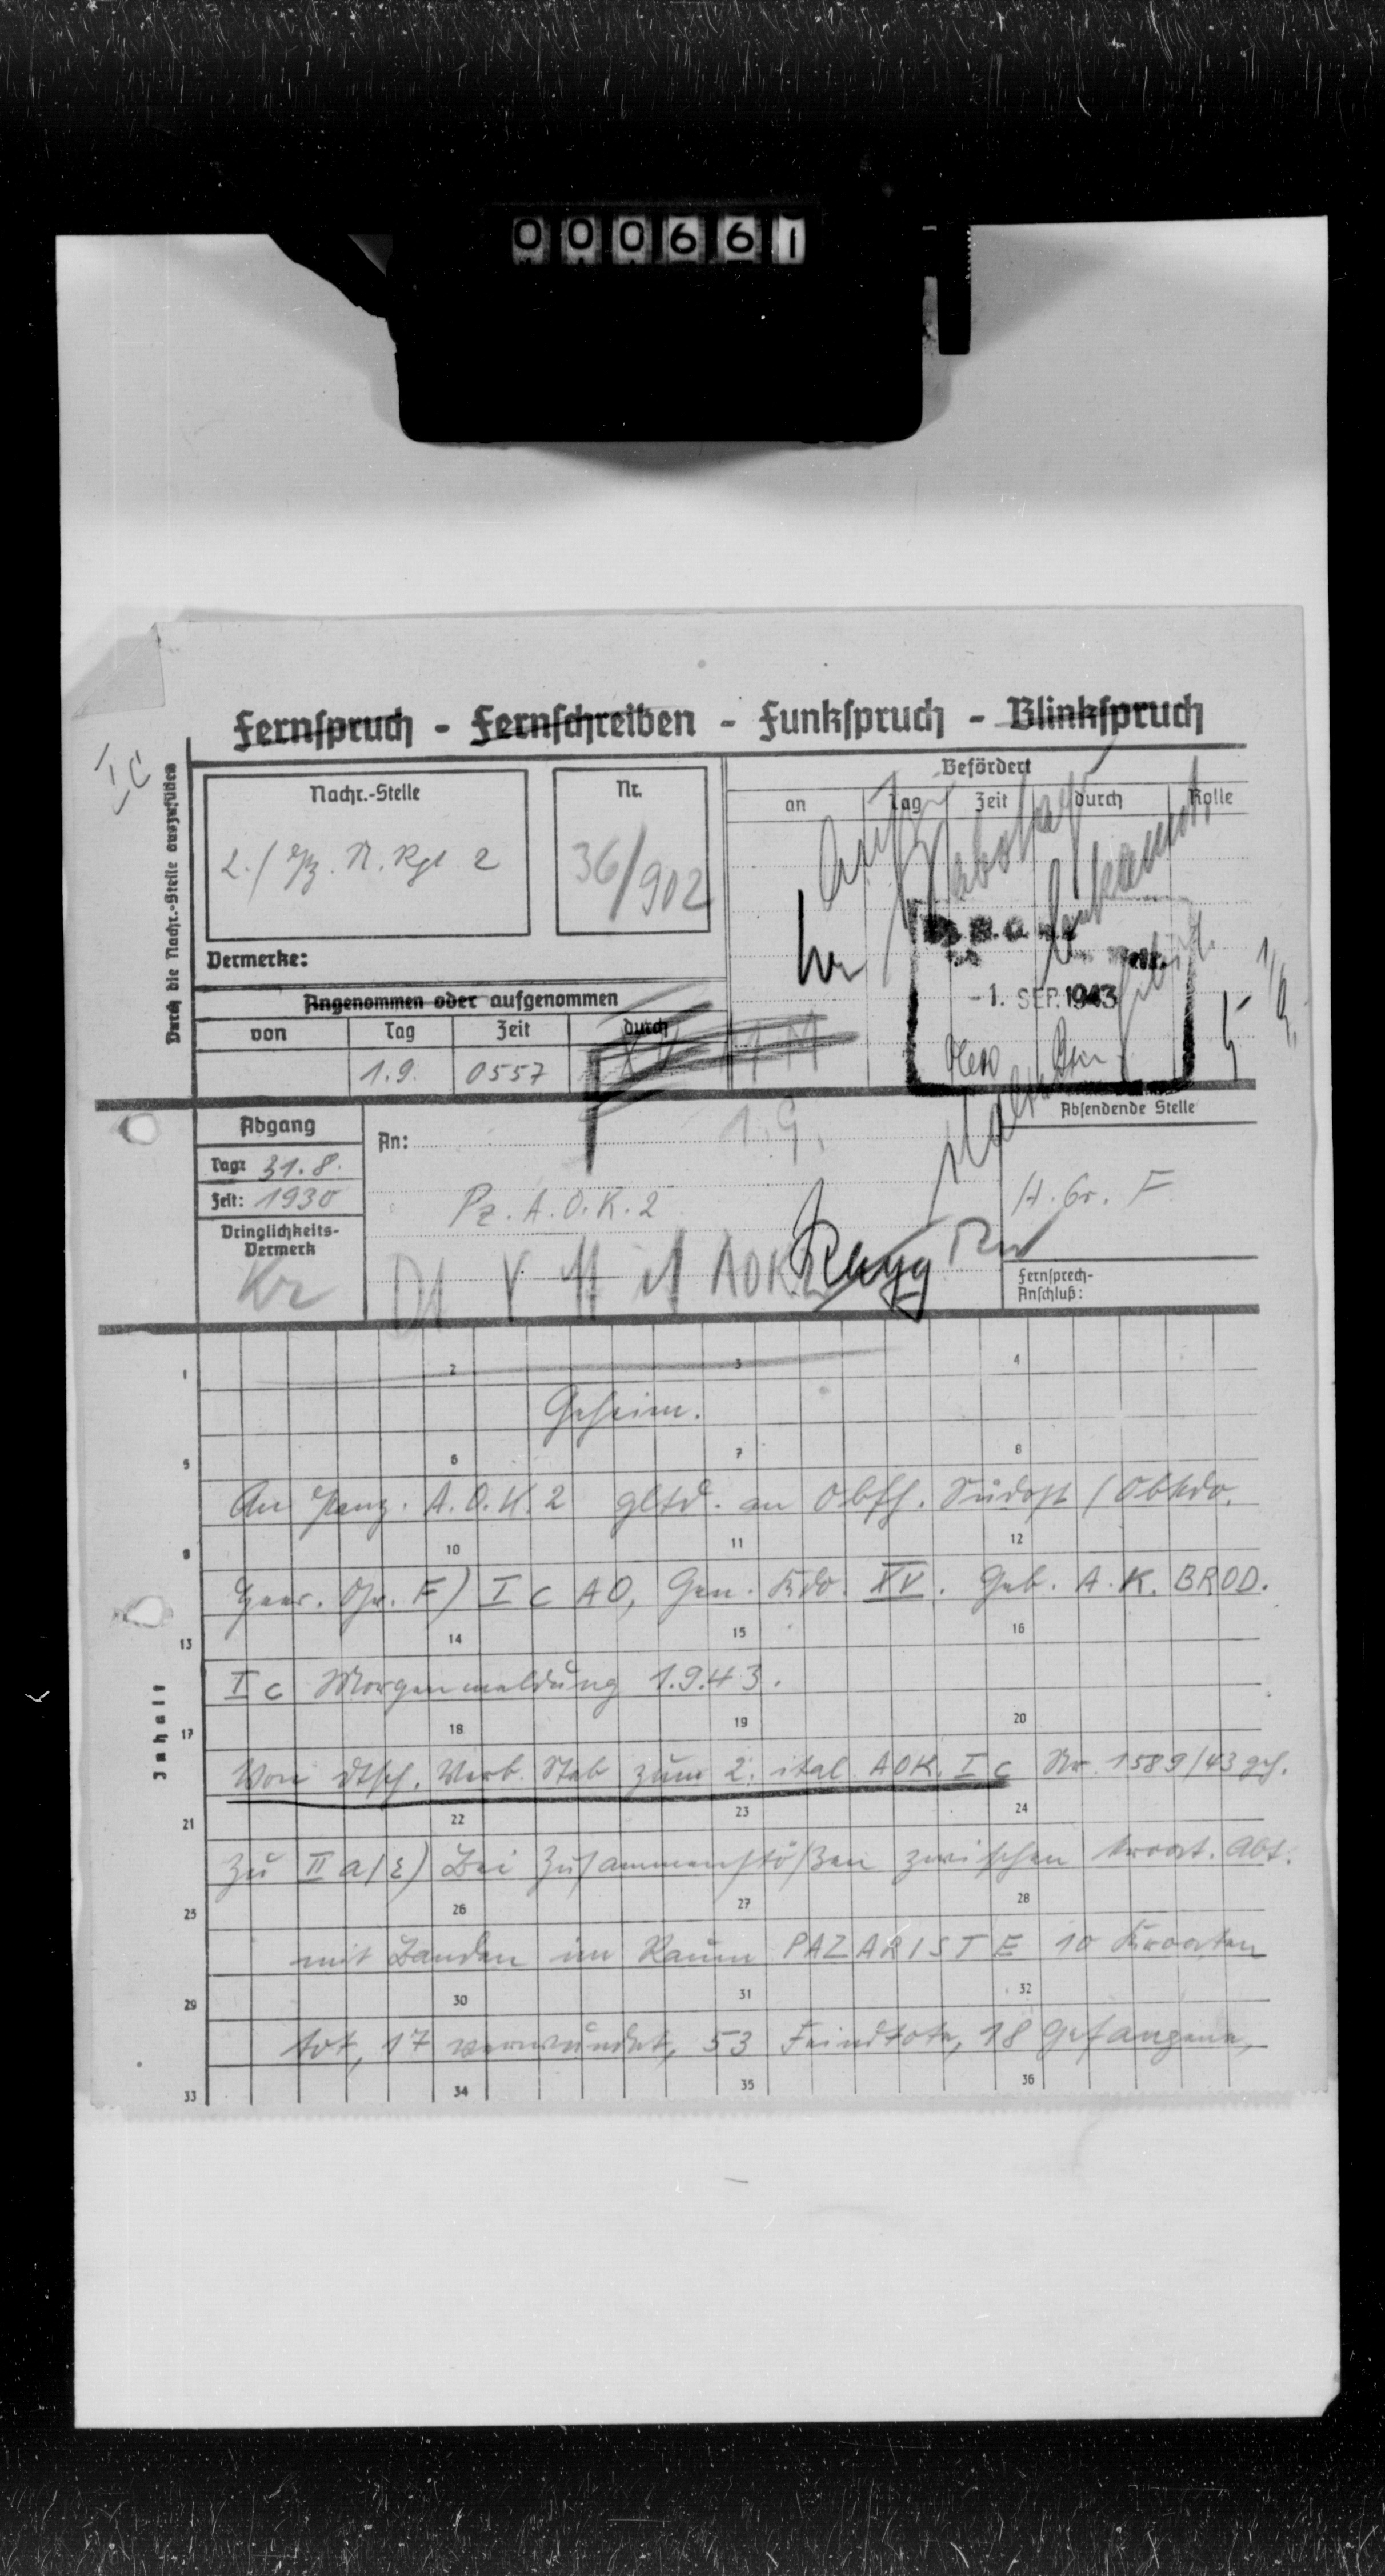 000661
Fernspruch - Fernschreiben - Funkspruch - Blinkspruch
I C
Durch die Nachr.-Stelle auszufüllen
Nachr.-Stelle
2./Pz. N. Rgt 2
Nr.
36/902
Befördert
an Tag Zeit durch Rolle
Vermerke:
-1. SEP. 1943
Angenommen oder aufgenommen
von Tag Zeit durch
1.9. 0557
Abgang
Tag: 31.8.
Zeit: 1930
Dringlichkeits-
Vermerk
Kr
An:
1.9.
Pz. A.O.K. 2
Absendende Stelle
H. Gr. F
Fernsprech-
Anschluß:
Inhalt
1 2 3 4
Geheim.
5 6 7 8
An Panz. A.O.K. 2 gltd. an Obfh. Südost (Obkdo.
9 10 11 12
Heer. Gr. F) I c AO, Gen. Kdo. XV. Geb. A.K. BROD.
13 14 15 16
I c Morgenmeldung 1.9.43.
17 18 19 20
Von dtsch. Verb. Stab zum 2. ital. AOK. I c Nr. 1589/43 geh.
21 22 23 24
Zu II a/ε) Bei Zusammenstößen zwischen kroat. Abt.
25 26 27 28
mit Banden im Raum PAZARISTE 10 Kroaten
29 30 31 32
tot, 17 verwundet, 53 Feindtote, 18 Gefangene,
33 34 35 36